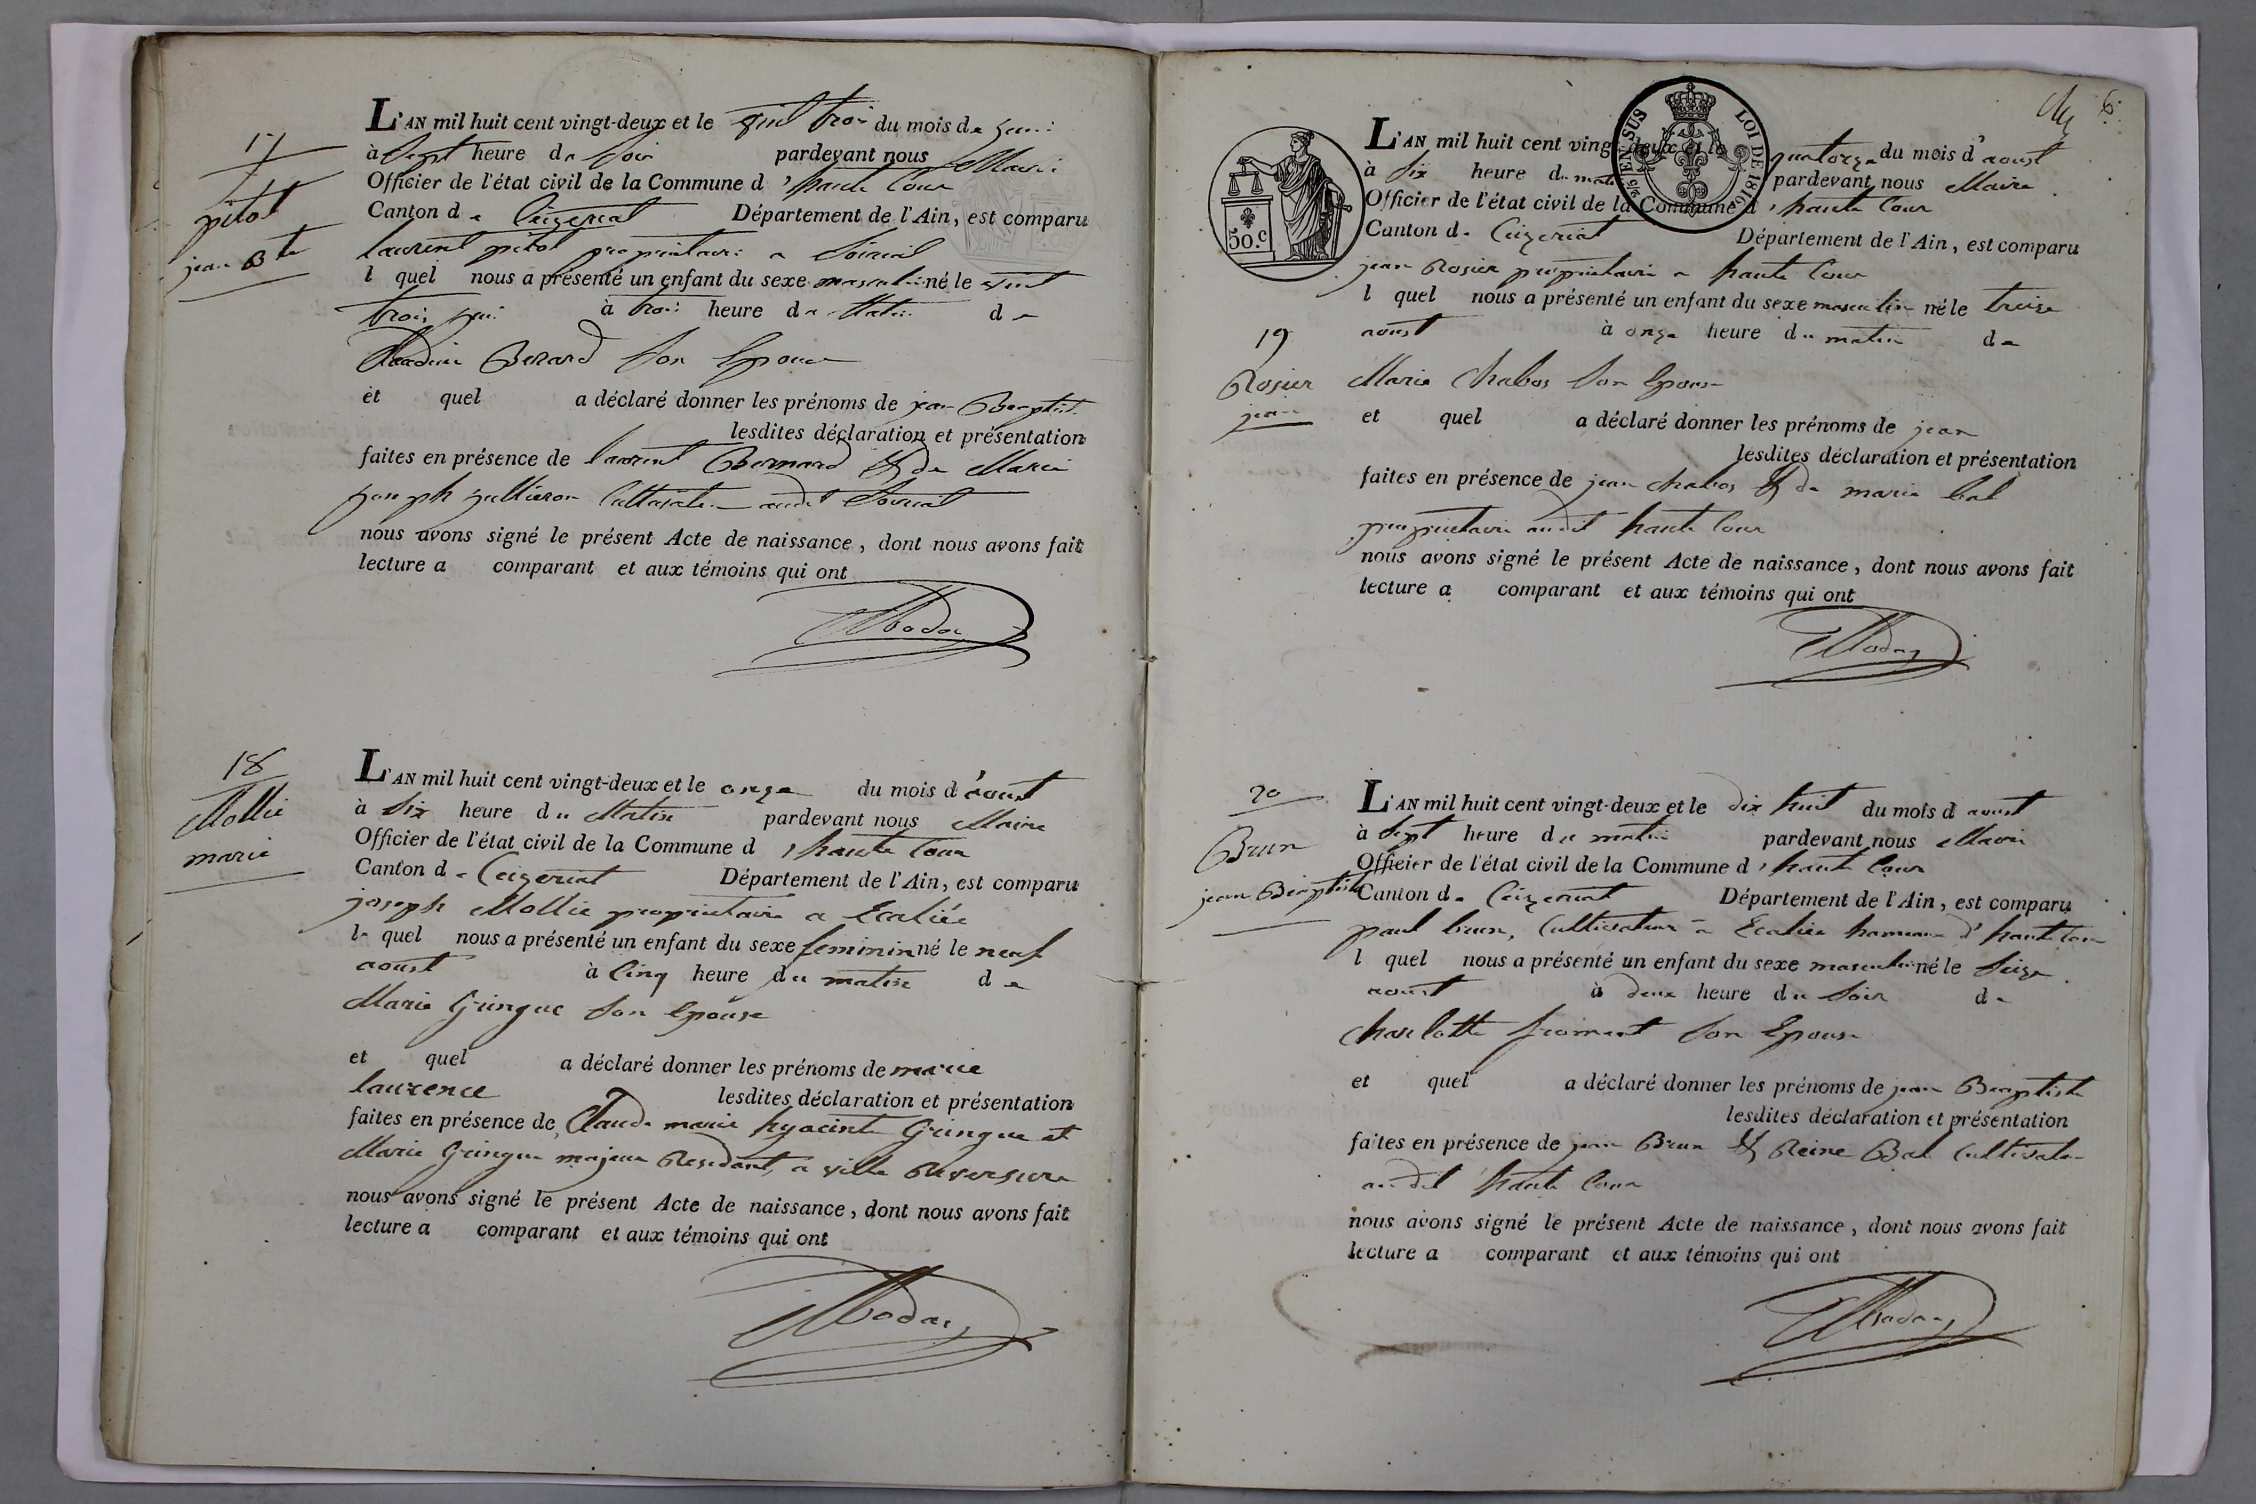 17
pitot
jean Bte
L'AN mil huit cent vingt-deux et le vint trois du mois de
à Sept heure du Soir pardevant nous Maire
Officier de l'état civil de la Commune d'haute Cour
Canton de Ceizeriat Département de l'Ain, est comparu
laurent pitot propriétaire a Soiriat
l quel nous a présenté un enfant du sexe masculin né le vint
trois à trois heure du Matin de
Claudine Berard Son Epouse
et quel a déclaré donner les prénoms de jean Baptiste
lesdites déclaration et présentation
faites en présence de laurent Bernard & de Marie
joseph Cultivateur audit Soiriat
nous avons signé le présent Acte de naissance, dont nous avons fait
lecture a comparant et aux témoins qui ont
18
Mollie
marie
L'AN mil huit cent vingt-deux et le onze du mois d'aoust
à Six heure du Matin pardevant nous Maire
Officier de l'état civil de la Commune d'haute Cour
Canton de Ceizeriat Département de l'Ain, est comparu
joseph Mollie propriétaire a Ecaliée
le quel nous a présenté un enfant du sexe feminin né le neuf
aoust à Cinq heure du matin de
Marie Gringue Son Epouse
et quel a déclaré donner les prénoms de marie
laurence lesdites déclaration et présentation
faites en présence de Claude marie hyacinte Gringue et
Marie Gringue majeur Residant a ville Reversure
nous avons signé le présent Acte de naissance, dont nous avons fait
lecture a comparant et aux témoins qui ont
6
50.c
25 EN SUS LOI DE 1816
L'AN mil huit cent vingt-deux et le quatorze du mois d'aoust
à Six heure du matin pardevant nous Maire
Officier de l'état civil de la Commune d'haute Cour
Canton de Ceizeriat Département de l'Ain, est comparu
jean Rosier propriétaire a haute Cour
l quel nous a présenté un enfant du sexe masculin né le treize
aoust à onze heure du matin de
19
Rosier
jean
Marie Chabos Son Epouse
et quel a déclaré donner les prénoms de jean
lesdites déclaration et présentation
faites en présence de jean Chabos & de marie bal
propriétaire audit haute Cour
nous avons signé le présent Acte de naissance, dont nous avons fait
lecture a comparant et aux témoins qui ont
20
Brun
jean Baptiste
L'AN mil huit cent vingt-deux et le dix huit du mois d aoust
à Sept heure du matin pardevant nous Maire
Officier de l'état civil de la Commune d'haute Cour
Canton de Ceizeriat Département de l'Ain, est comparu
paul brun, Cultivateur a Ecaliée hameau d'haute Cour
l quel nous a présenté un enfant du sexe masculin né le Seize
aoust à deux heure du Soir de
Charlotte froment Son Epouse
et quel a déclaré donner les prénoms de jean Baptiste
lesdites déclaration et présentation
faites en présence de jean Brun & Reine Bal Cultivateur
audit haute Cour
nous avons signé le présent Acte de naissance, dont nous avons fait
lecture a comparant et aux témoins qui ont